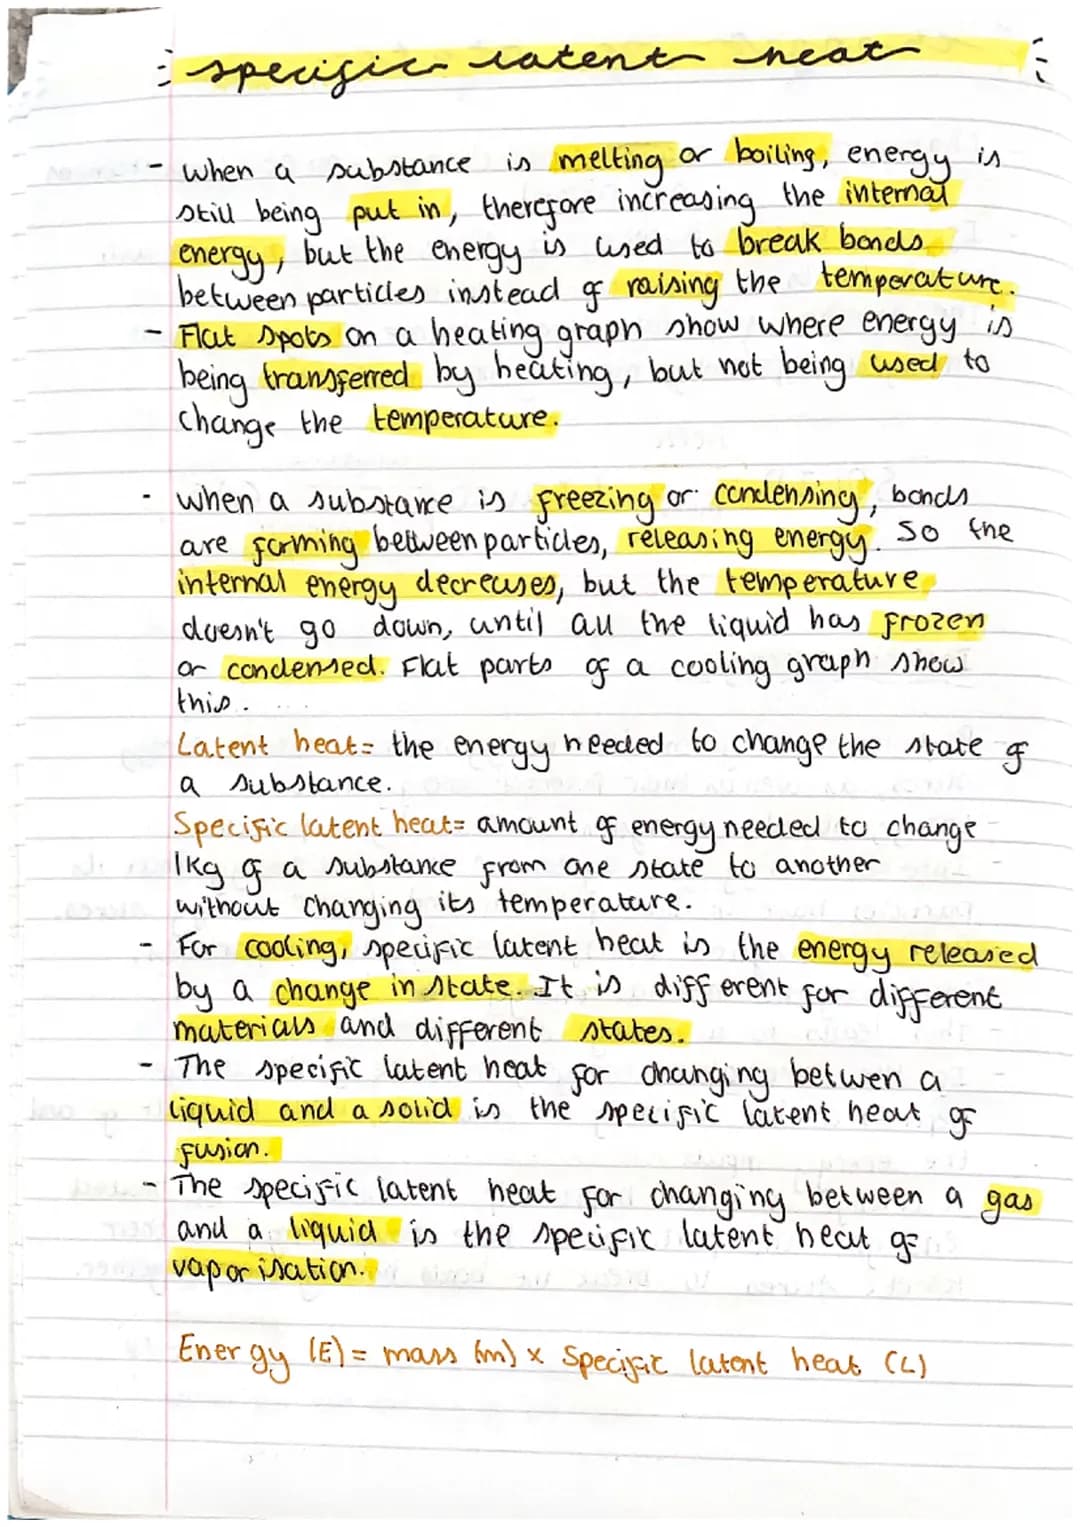 specific latent heat
- when a substance is melting or boiling, energy is
still being put in, therefore increasing the internal
energy, but the energy is used to break bonds
between particles instead of raising the temperature.
- Flat spots on a heating graph show where energy is
being transferred by heating, but not being used to
change the temperature.
- when a substance is freezing or condensing, bonds
are forming between particles, releasing energy. So the
internal energy decreases, but the temperature
doesn't go down, until all the liquid has frozen
or condensed. Flat parts of a cooling graph show
this.
Latent heat= the energy needed to change the state of
a substance.
Specific latent heat= amount of energy needed to change
1kg of a substance from one state to another
without changing its temperature.
- For cooling, specific latent heat is the energy released
by a change in state. It is different for different
materials and different states.
- The specific latent heat for changing betwen a
liquid and a solid is the specific latent heat of
fusion.
- The specific latent heat for changing between a gas
and a liquid is the specific latent heat of
vaporisation.
Energy (E) = mass (m) x Specific latent heat (L)